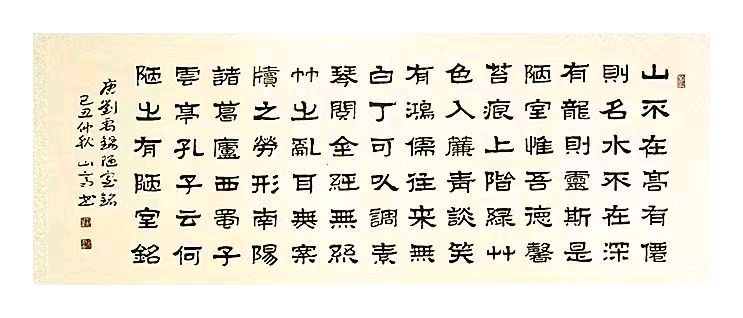 山不在高有僊
則名水不在深
有龍則靈斯是
陋室惟吾德馨
苔痕上階綠艸
色入簾青談笑
有鴻儒往来無
白丁可以調素
琴閱金經無絲
竹之亂耳無案
牘之勞形南陽
諸葛廬西蜀子
雲亭孔子云何
陋之有陋室銘
唐劉禹錫陋室銘
己丑仲秋山高书